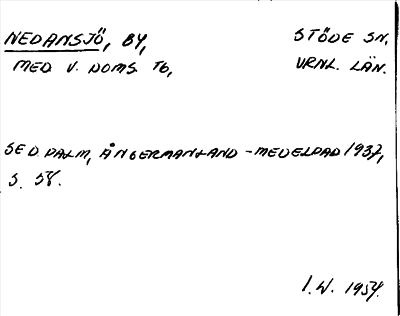 NEDANSJÖ, BY, STÖDE SN,
MED V. DOMS. TG, VRNL. LÄN.
SE D. PALM, ÅNGERMANLAND - MEDELPAD 1937,
S. 58.
I. W. 1954.